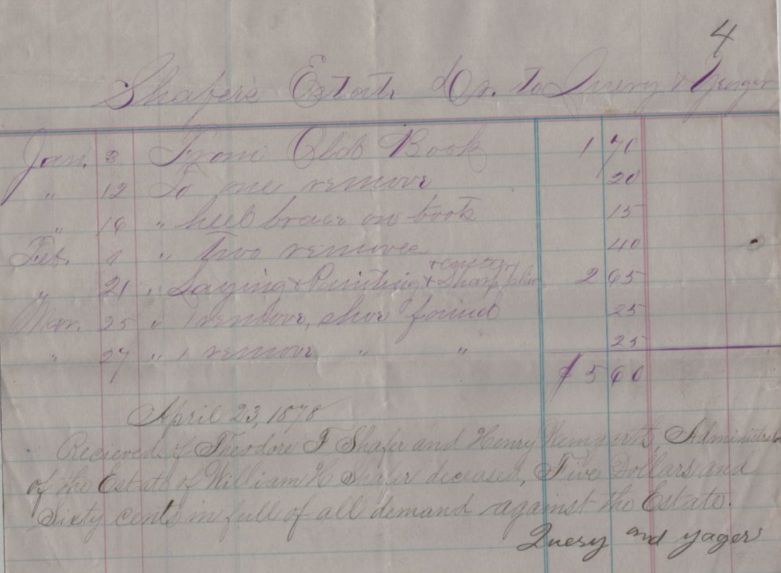 4
Shafer's Estate Dr. to Query & Yeager
Jan. 3 From Old Book 1 70
" 12 To one remove 20
" 16 " heel brace on book 15
Feb. 1 " two removes 40
21 " Laying & Pointing & Sharp plow 2 65
Mar. 25 " 1 remove, shoe found 25
" 27 " 1 remove " " 25
$ 5 60
April 23, 1878
Recieved of Theodore F Shafer and Henry Administrators
of the Estate of William H Shafer deceased, Five Dollars and
Sixty cents in full of all demand against the Estate.
Quesy and Yager